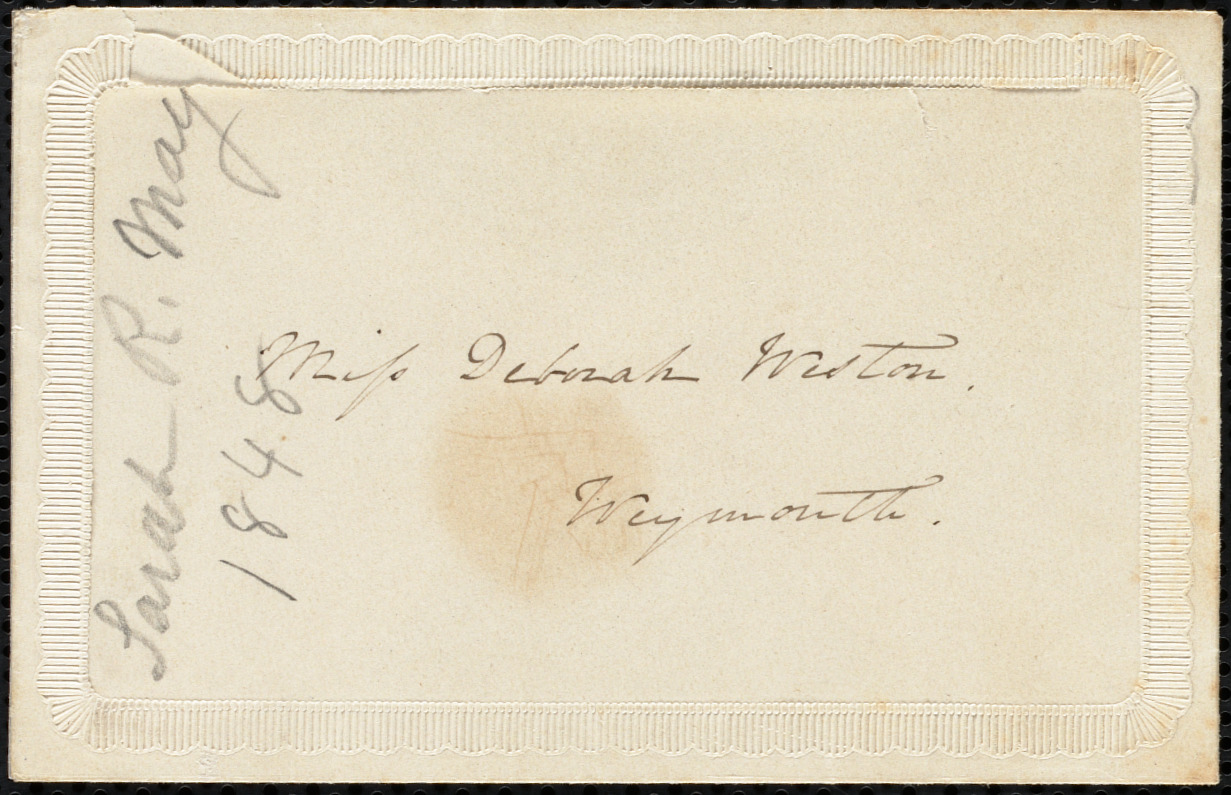 Miss Deborah Weston.
Weymouth.
Sarah R. May
1848